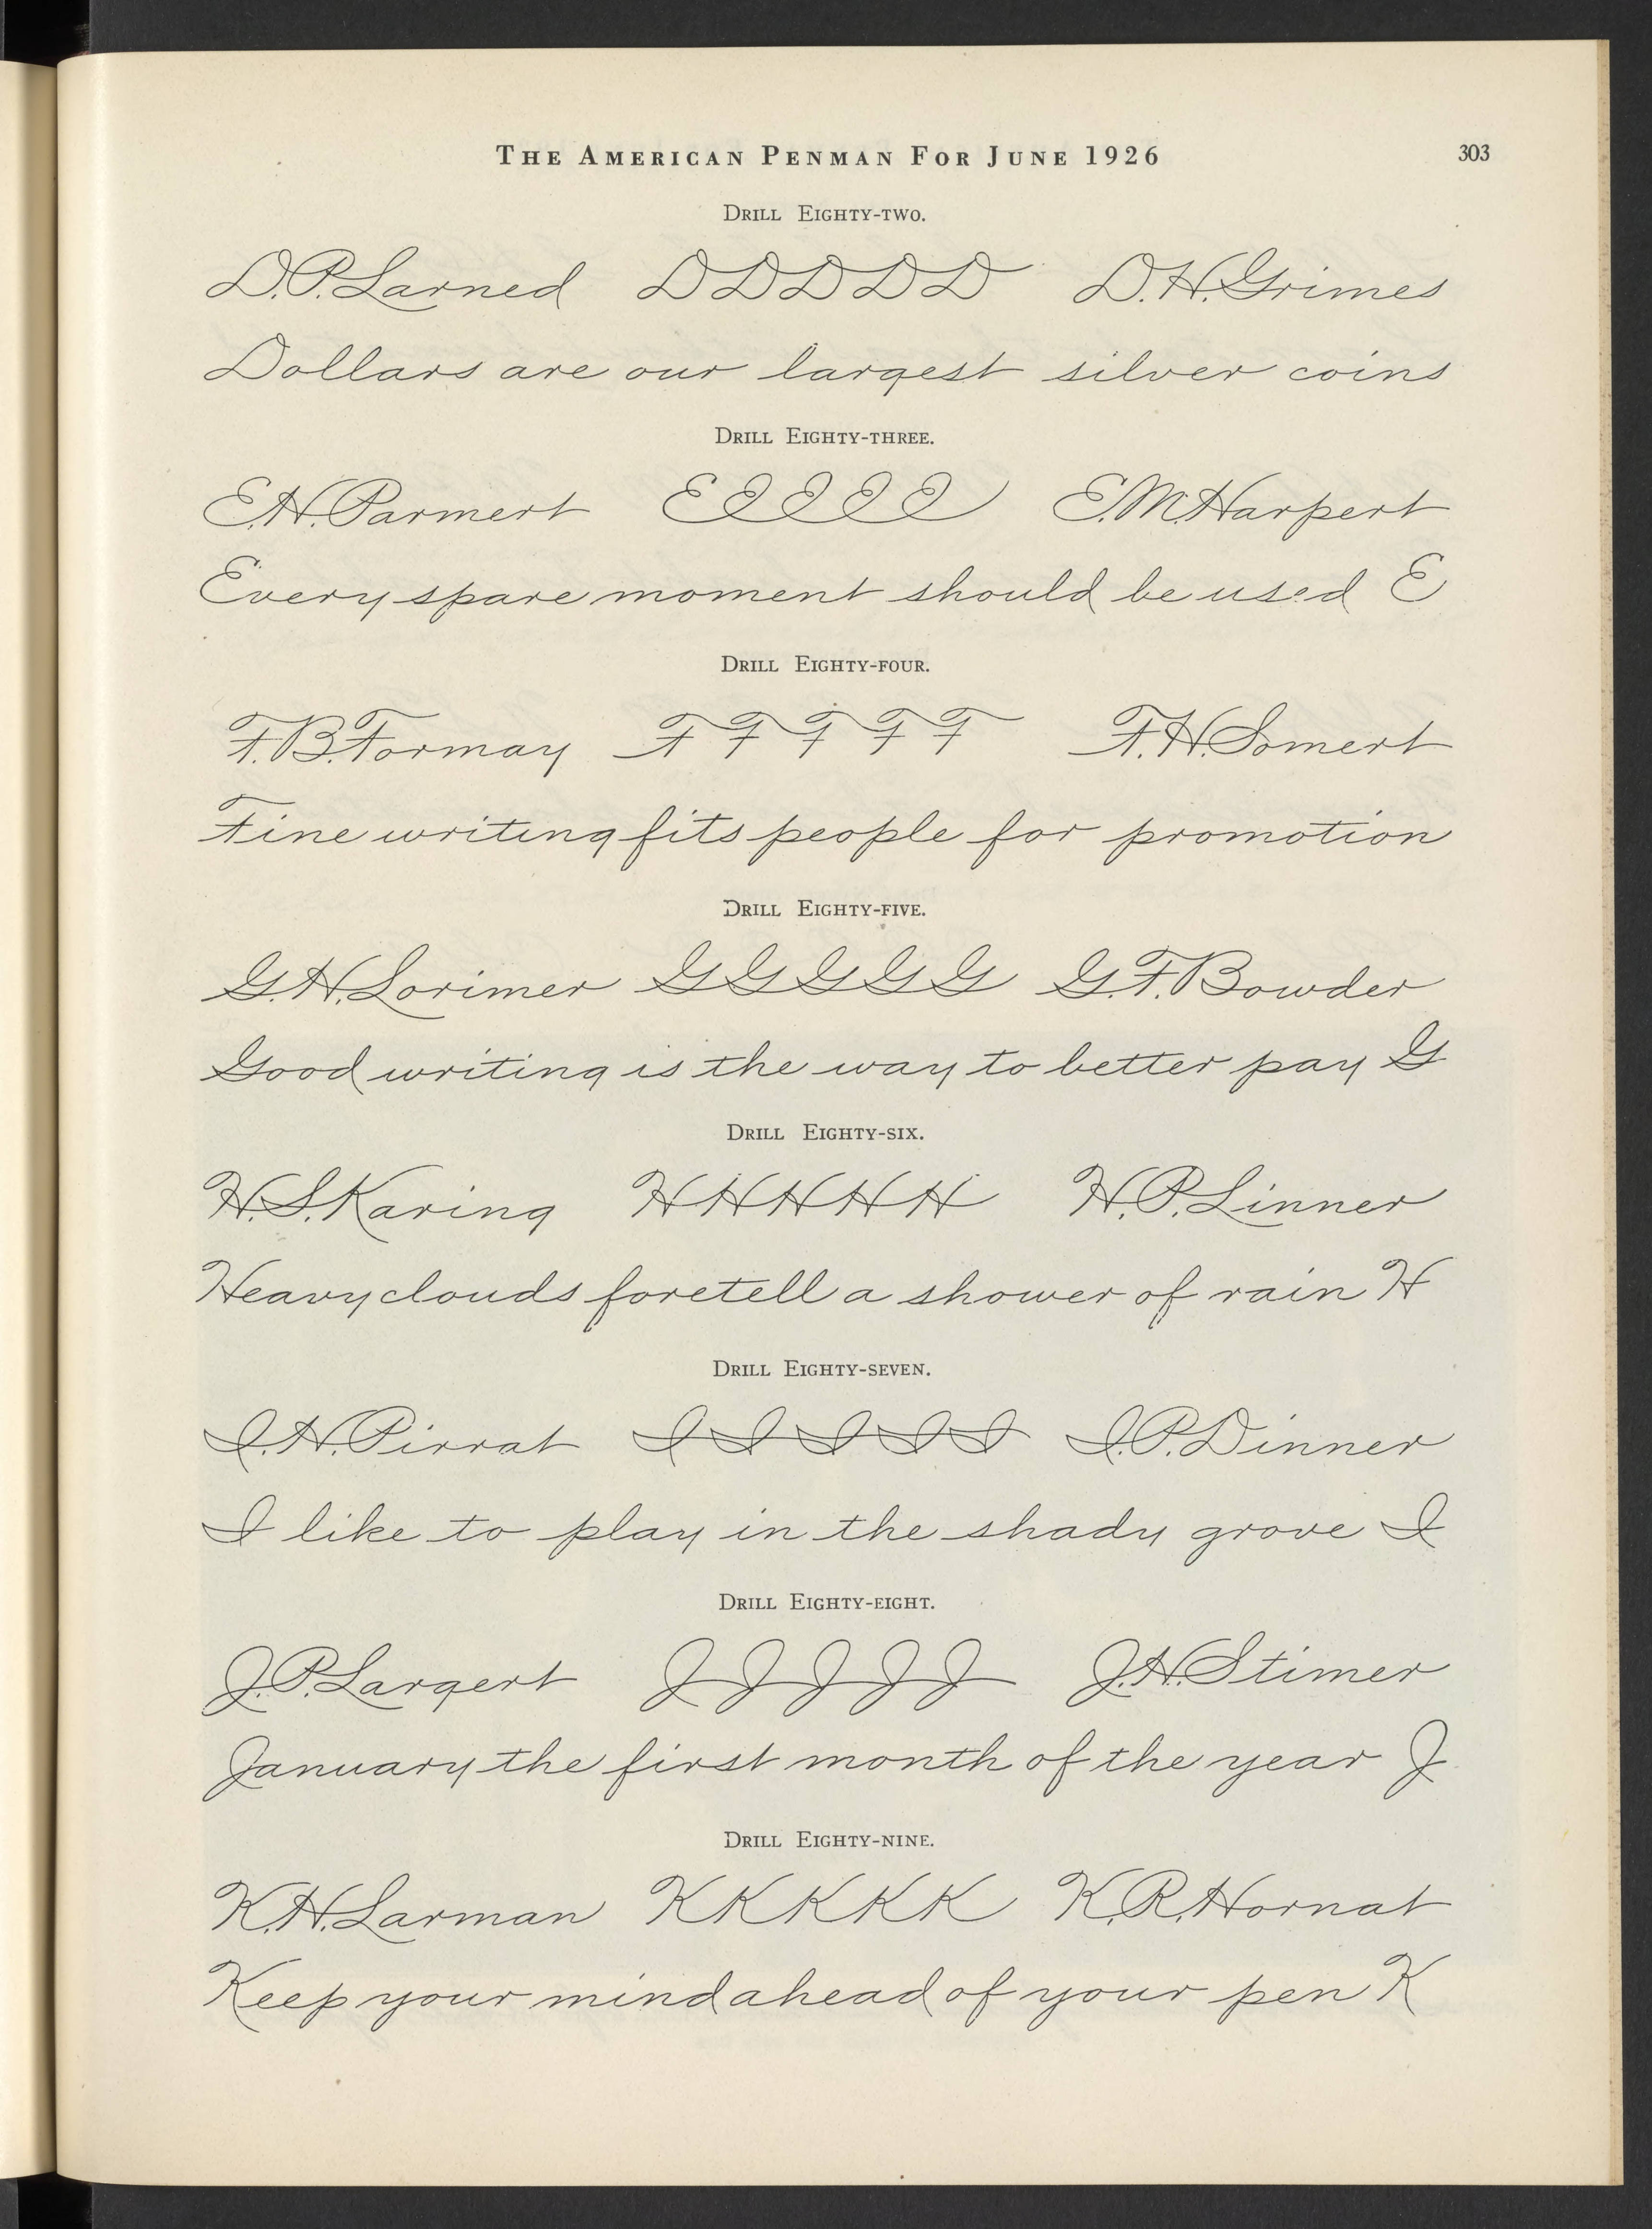 THE AMERICAN PENMAN FOR JUNE 1926 303
DRILL EIGHTY-TWO.
D.P. Larned D D D D D D.H. Grimes
Dollars are our largest silver coins
DRILL EIGHTY-THREE.
E.H. Parmert E E E E E E.M. Harpert
Every spare moment should be used E
DRILL EIGHTY-FOUR.
F.B. Formay F F F F F F.H. Somert
Fine writing fits people for promotion
DRILL EIGHTY-FIVE.
G.H. Lorimer G G G G G G.F. Bowder
Good writing is the way to better pay G
DRILL EIGHTY-SIX.
H.S. Karing H H H H H H.P. Linner
Heavy clouds foretell a shower of rain H
DRILL EIGHTY-SEVEN.
I.H. Pirrat I I I I I I.P. Dinner
I like to play in the shady grove I
DRILL EIGHTY-EIGHT.
J.P. Largert J J J J J J.H. Stimer
January the first month of the year J
DRILL EIGHTY-NINE.
K.H. Larman K K K K K K.R. Hornat
Keep your mind ahead of your pen K